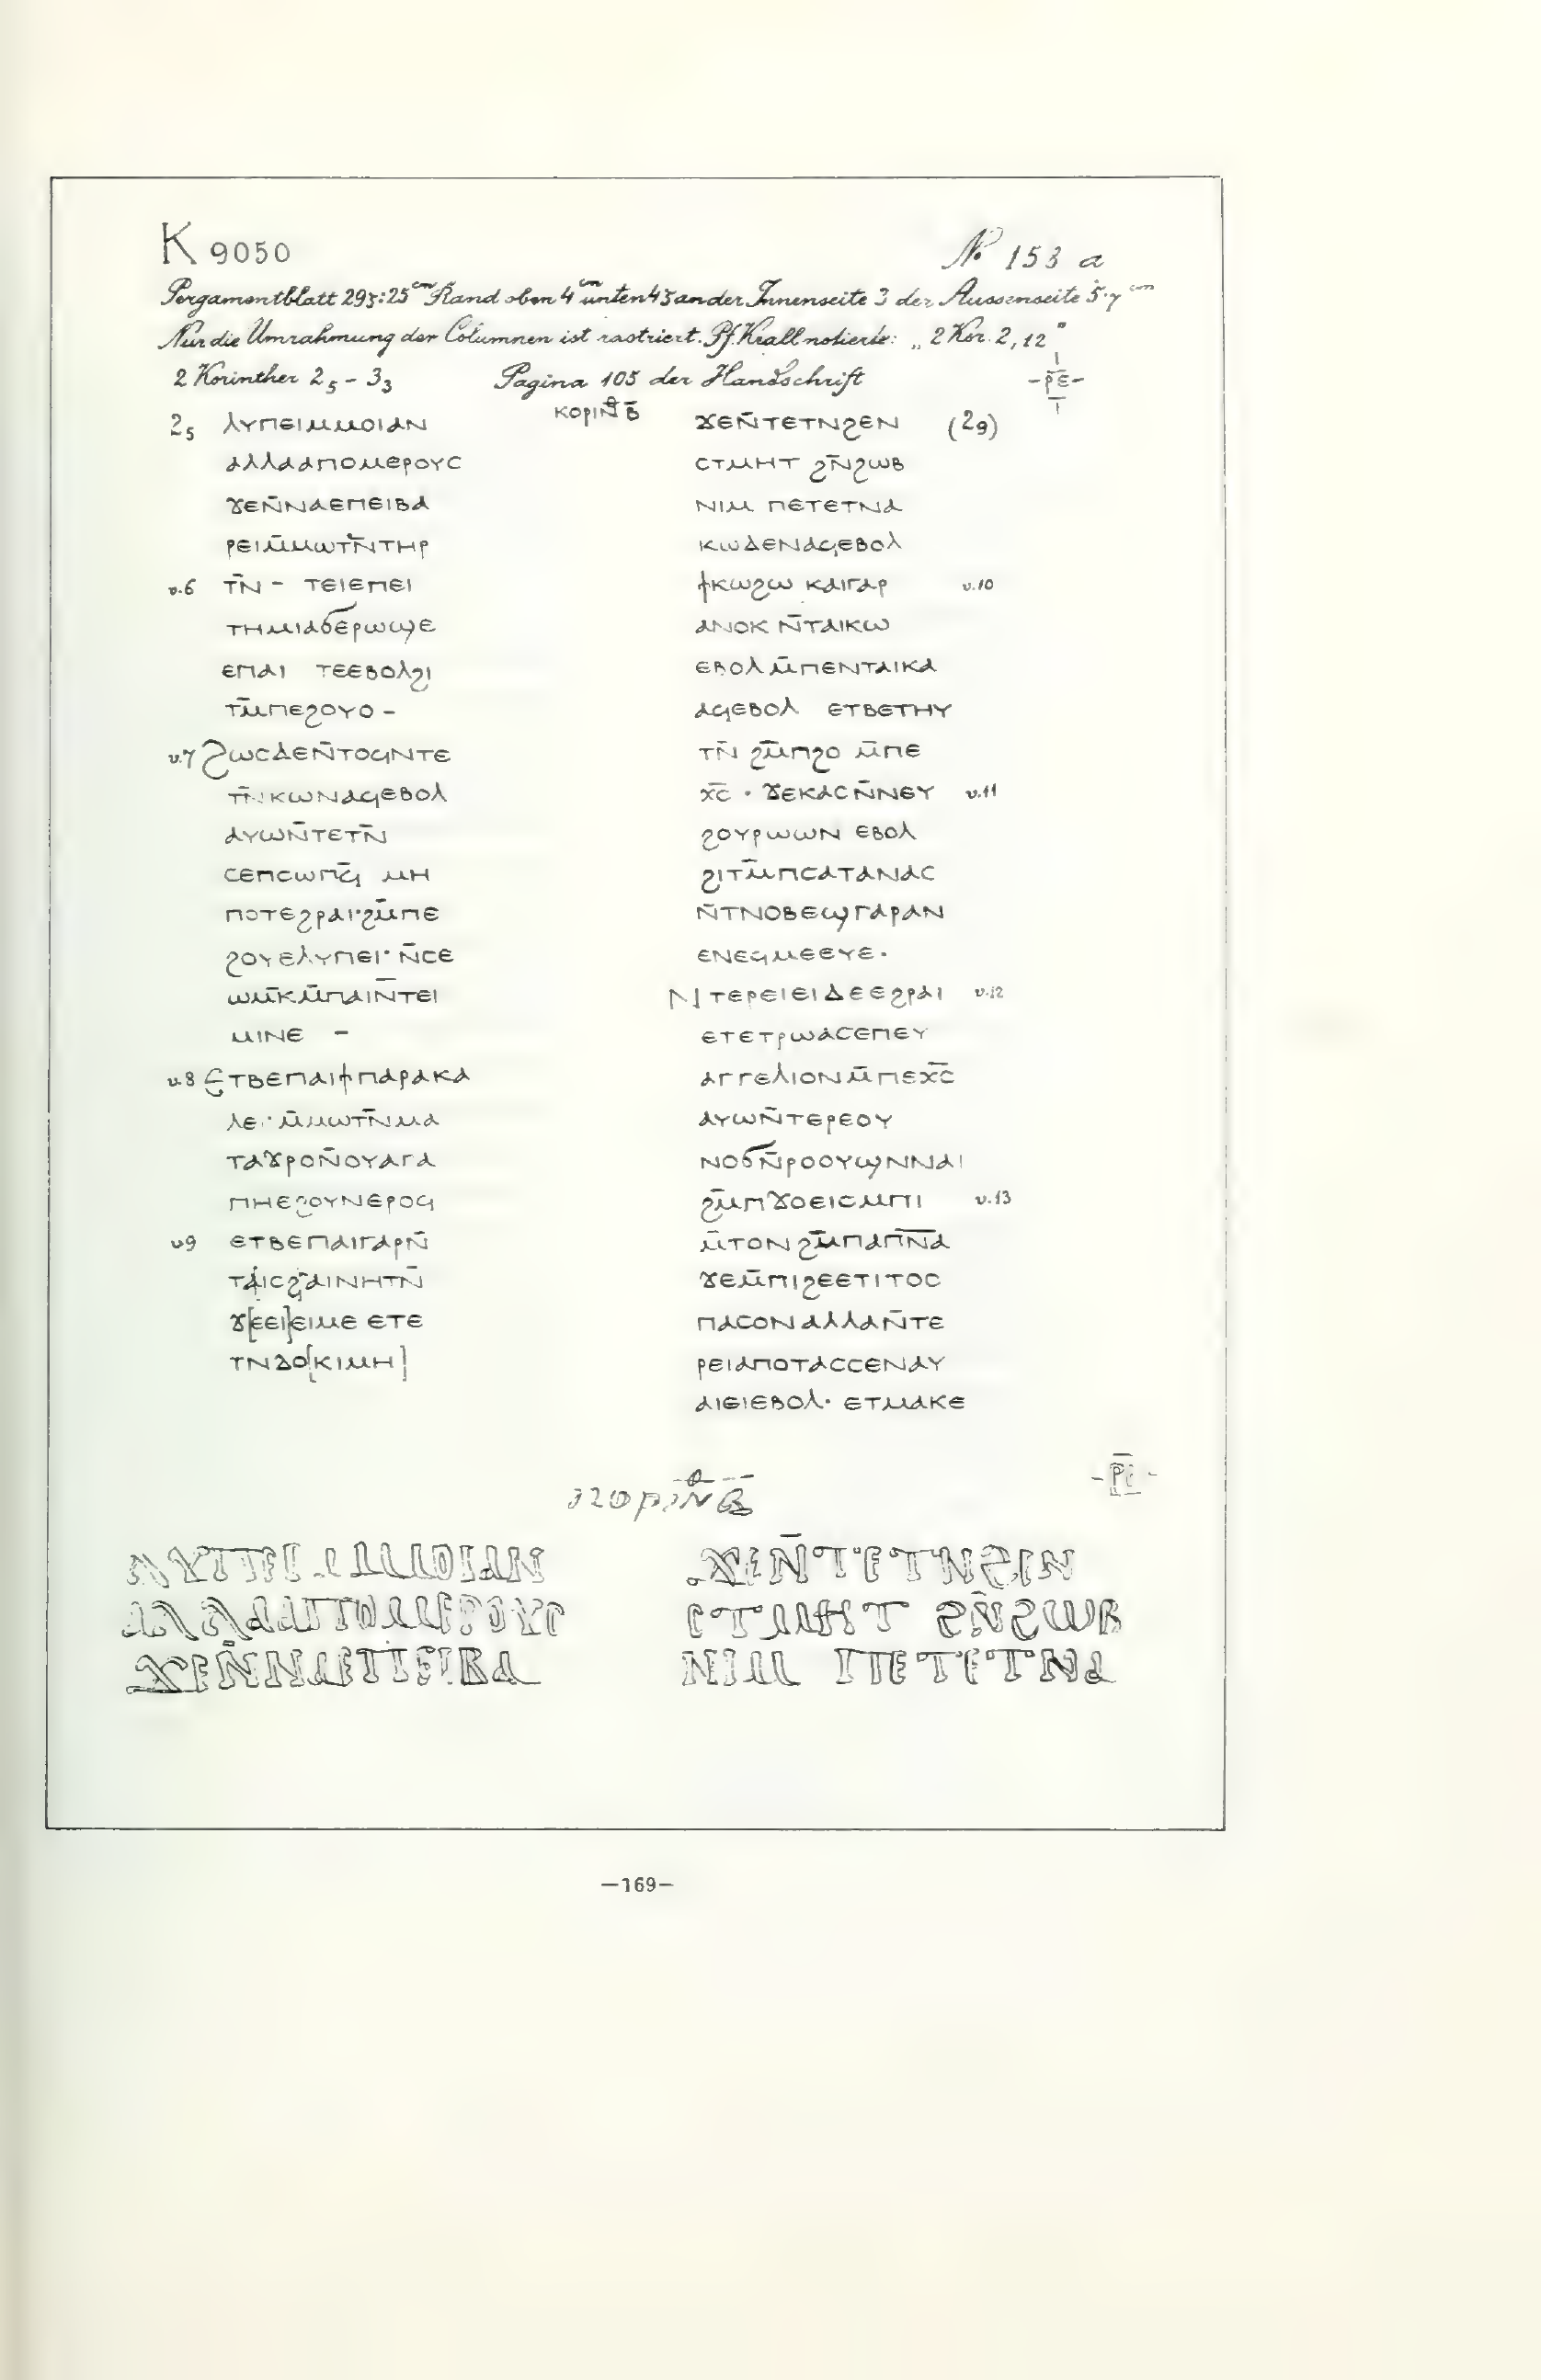 K 9050
№ 153 a
Pergamentblatt 29,5:25 cm Rand oben 4 cm unten 4,5 an der Innenseite 3 der Aussenseite 5·7 cm
Nur die Umrahmung der Columnen ist rastriert. Pf. Krall notierte: „2 Kor. 2,12"
2 Korinther 2₅ – 3₃ Pagina 105 der Handschrift -ⲣ̅ⲉ̅-
ⲕⲟⲣⲓⲛ̅ⲑ ⲃ̅
2₅ ⲗⲩⲡⲉⲓⲙⲙⲟⲓⲁⲛ
ⲁⲗⲗⲁⲁⲡⲟⲙⲉⲣⲟⲩⲥ
ϫⲉⲛ̅ⲛⲁⲉⲡⲉⲓⲃⲁ
ⲣⲉⲓⲙ̅ⲙⲱⲧⲛ̅ⲧⲏⲣ
v.6 ⲧⲛ̅ – ⲧⲉⲓⲉⲡⲉⲓ
ⲧⲏⲙⲓⲁϭⲉⲣⲱϣⲉ
ⲉⲡⲁⲓ ⲧⲉⲉⲃⲟⲗϩⲓ
ⲧⲙ̅ⲡⲉϩⲟⲩⲟ –
v.7 ϩⲱⲥⲇⲉⲛ̅ⲧⲟϥⲛⲧⲉ
ⲧⲛ̅ⲕⲱⲛⲁϥⲉⲃⲟⲗ
ⲁⲩⲱⲛ̅ⲧⲉⲧⲛ̅
ⲥⲉⲡⲥⲱⲡϥ̅ ⲙⲏ
ⲡⲟⲧⲉϩⲣⲁⲓ·ϩⲙ̅ⲡⲉ
ϩⲟⲩⲉⲗⲩⲡⲉⲓ·ⲛ̅ⲥⲉ
ⲱⲙ̅ⲕⲙ̅ⲡⲁⲓⲛ̅ⲧⲉⲓ
ⲙⲓⲛⲉ –
v.8 ⲉⲧⲃⲉⲡⲁⲓϯⲡⲁⲣⲁⲕⲁ
ⲗⲉⲓ ⲙ̅ⲙⲱⲧⲛ̅ⲙⲁ
ⲧⲁϫⲣⲟⲛ̅ⲟⲩⲁⲅⲁ
ⲡⲏⲉϩⲟⲩⲛⲉⲣⲟϥ
v9 ⲉⲧⲃⲉⲡⲁⲓⲅⲁⲣⲛ̅
ⲧⲁⲓⲥϩⲁⲓⲛⲏⲧⲛ̅
ϫ[ⲉⲉⲓ]ⲉⲓⲙⲉ ⲉⲧⲉ
ⲧⲛⲇⲟ[ⲕⲓⲙⲏ]
ϫⲉⲛ̅ⲧⲉⲧⲛϩⲉⲛ (2₉)
ⲥⲧⲙⲏⲧ ϩⲛ̅ϩⲱⲃ
ⲛⲓⲙ ⲡⲉⲧⲉⲧⲛⲁ
ⲕⲱⲇⲉⲛⲁϥⲉⲃⲟⲗ
ϯⲕⲱϩⲱ ⲕⲁⲓⲅⲁⲣ v.10
ⲁⲛⲟⲕ ⲛ̅ⲧⲁⲓⲕⲱ
ⲉⲃⲟⲗⲙ̅ⲡⲉⲛⲧⲁⲓⲕⲁ
ⲁϥⲉⲃⲟⲗ ⲉⲧⲃⲉⲧⲏⲩ
ⲧⲛ̅ ϩⲙ̅ⲡϩⲟ ⲙ̅ⲡⲉ
ⲭ̅ⲥ̅ · ϫⲉⲕⲁⲥⲛ̅ⲛⲉⲩ v.11
ϩⲟⲩⲣⲱⲱⲛ ⲉⲃⲟⲗ
ϩⲓⲧⲙ̅ⲡⲥⲁⲧⲁⲛⲁⲥ
ⲛ̅ⲧⲛⲟⲃⲉϣⲅⲁⲣⲁⲛ
ⲉⲛⲉϥⲙⲉⲉⲩⲉ·
ⲛⲧⲉⲣⲉⲓⲉⲓⲇⲉⲉϩⲣⲁⲓ v.12
ⲉⲧⲉⲧⲣⲱⲁⲥⲉⲡⲉⲩ
ⲁⲅⲅⲉⲗⲓⲟⲛⲙ̅ⲡⲉⲭ̅ⲥ̅
ⲁⲩⲱⲛ̅ⲧⲉⲣⲉⲟⲩ
ⲛⲟϭⲛ̅ⲣⲟⲟⲩⲱⲛⲛⲁⲓ
ϩⲙ̅ⲡϫⲟⲉⲓⲥⲙⲡⲓ v.13
ⲙ̅ⲧⲟⲛϩⲙ̅ⲡⲁⲡ̅ⲛ̅ⲁ̅
ϫⲉⲙ̅ⲡⲓϩⲉⲉⲧⲓⲧⲟⲥ
ⲡⲁⲥⲟⲛⲁⲗⲗⲁⲛ̅ⲧⲉ
ⲣⲉⲓⲁⲡⲟⲧⲁⲥⲥⲉⲛⲁⲩ
ⲁⲓⲉⲓⲉⲃⲟⲗ· ⲉⲧⲙⲁⲕⲉ
ⲕⲟⲣⲓⲛ̅ⲑ ⲃ̅ -ⲣ̅ⲉ̅-
ⲗⲩⲡⲉⲓⲙⲙⲟⲓⲁⲛ ϫⲉⲛ̅ⲧⲉⲧⲛϩⲉⲛ
ⲁⲗⲗⲁⲁⲡⲟⲙⲉⲣⲟⲩⲥ ⲥⲧⲙⲏⲧ ϩⲛ̅ϩⲱⲃ
ϫⲉⲛ̅ⲛⲁⲉⲡⲉⲓⲃⲁ ⲛⲓⲙ ⲡⲉⲧⲉⲧⲛⲁ
—169—